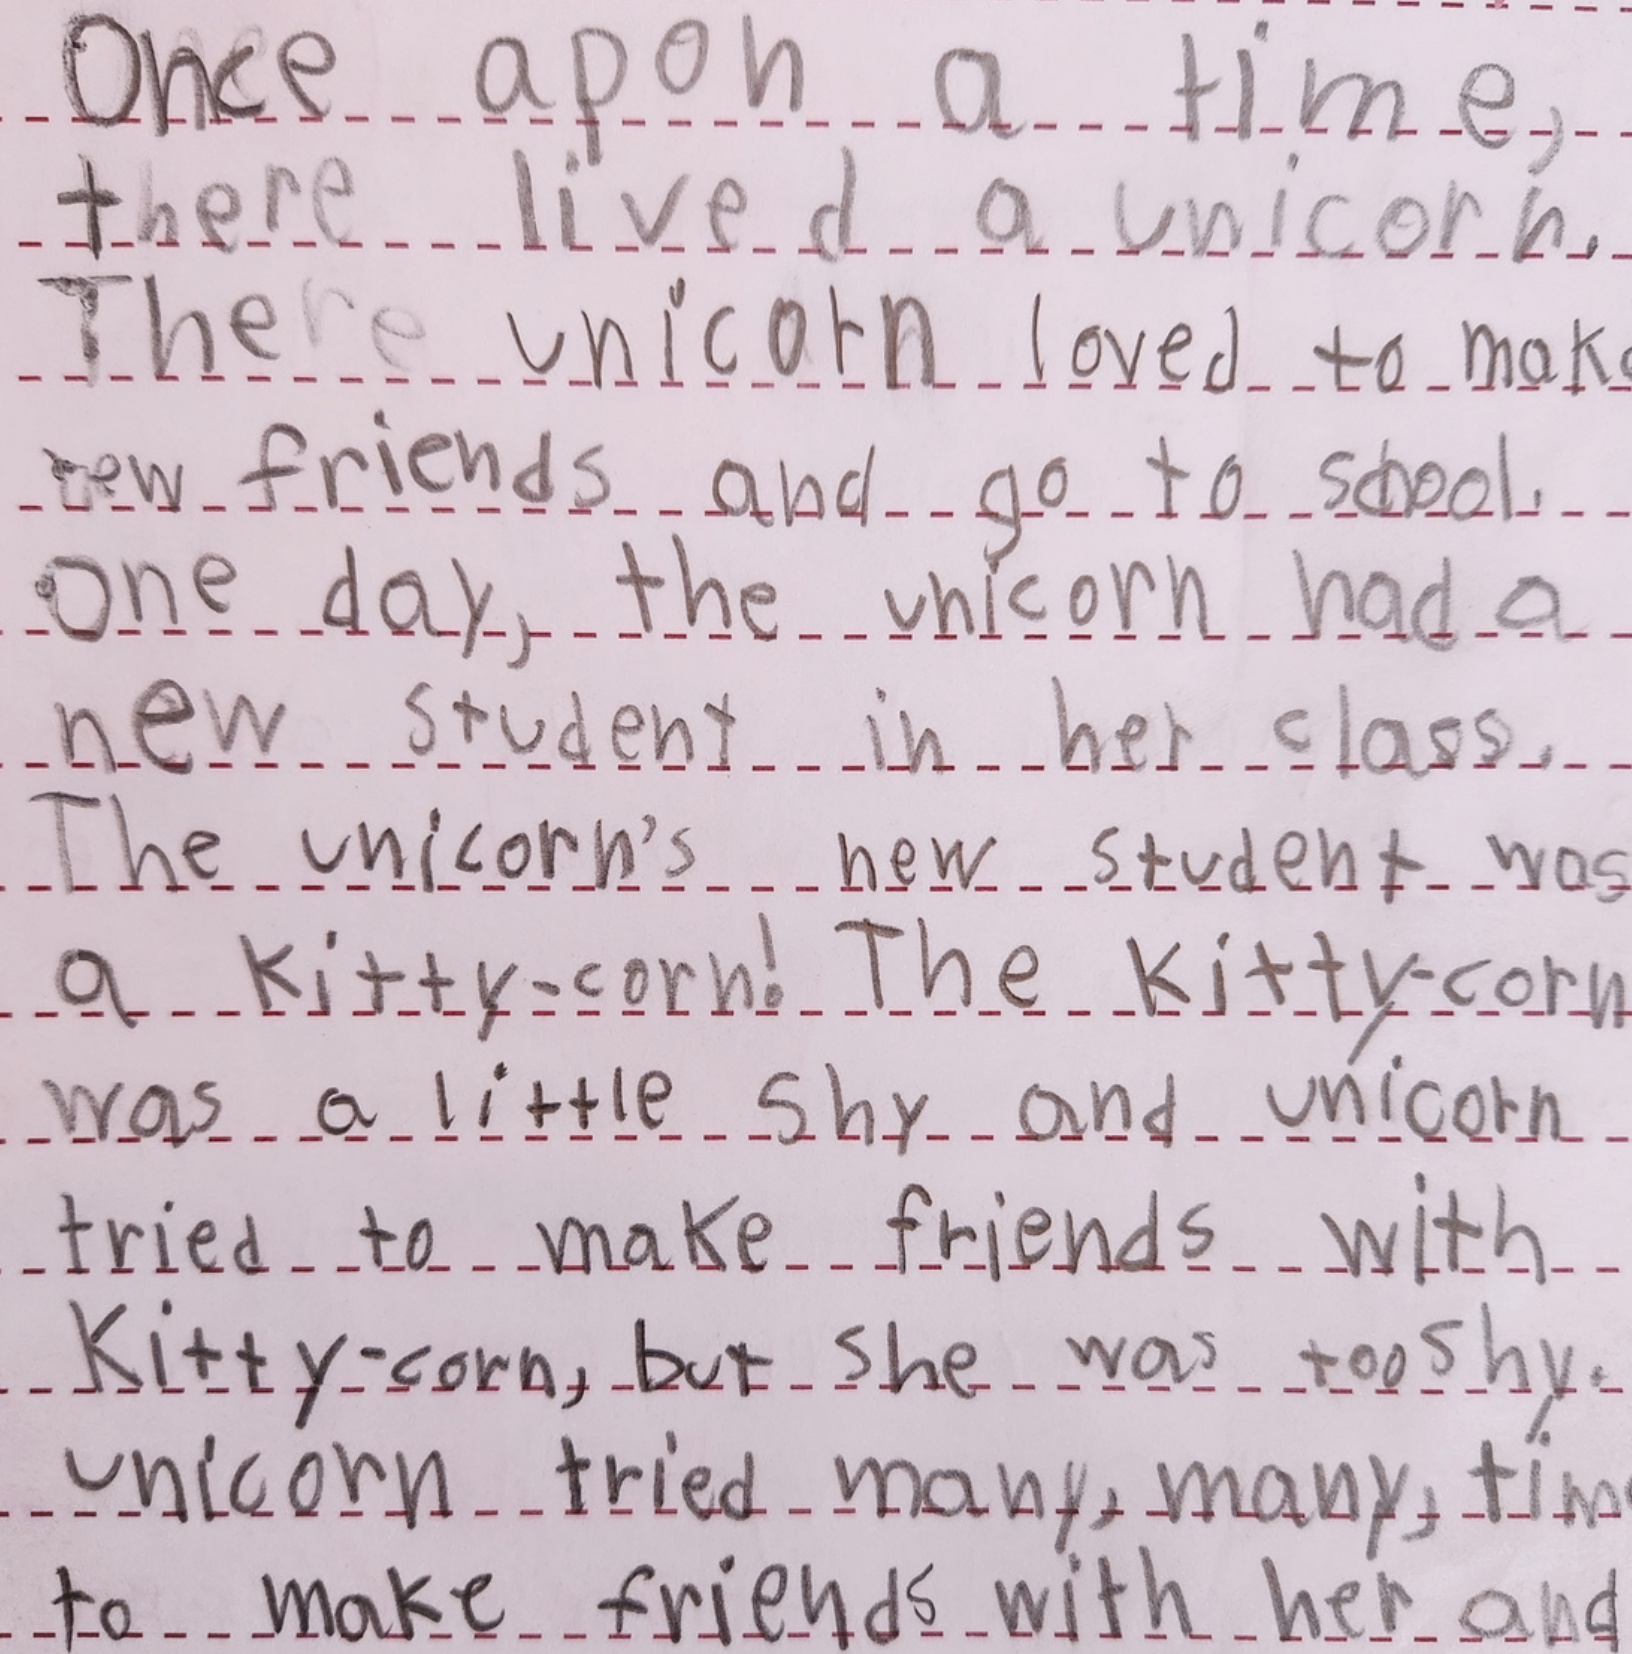 Once apon a time,
there lived a unicorn.
There unicorn loved to make
new friends and go to school.
One day, the unicorn had a
new student in her class.
The unicorn's new student was
a Kitty-corn! The Kitty-corn
was a little shy and unicorn
tried to make friends with
Kitty-corn, but she was too shy.
unicorn tried many, many, time
to make friends with her and